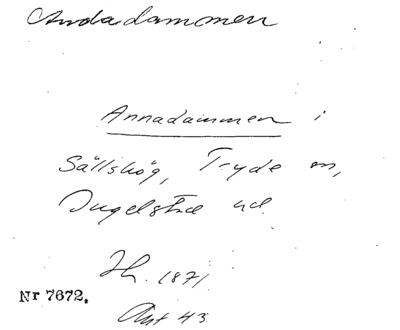 Andadammen
Annadammen i
Sällshög, Tryde sn,
Ingelstad hd.
1871
Nr 7672.
43